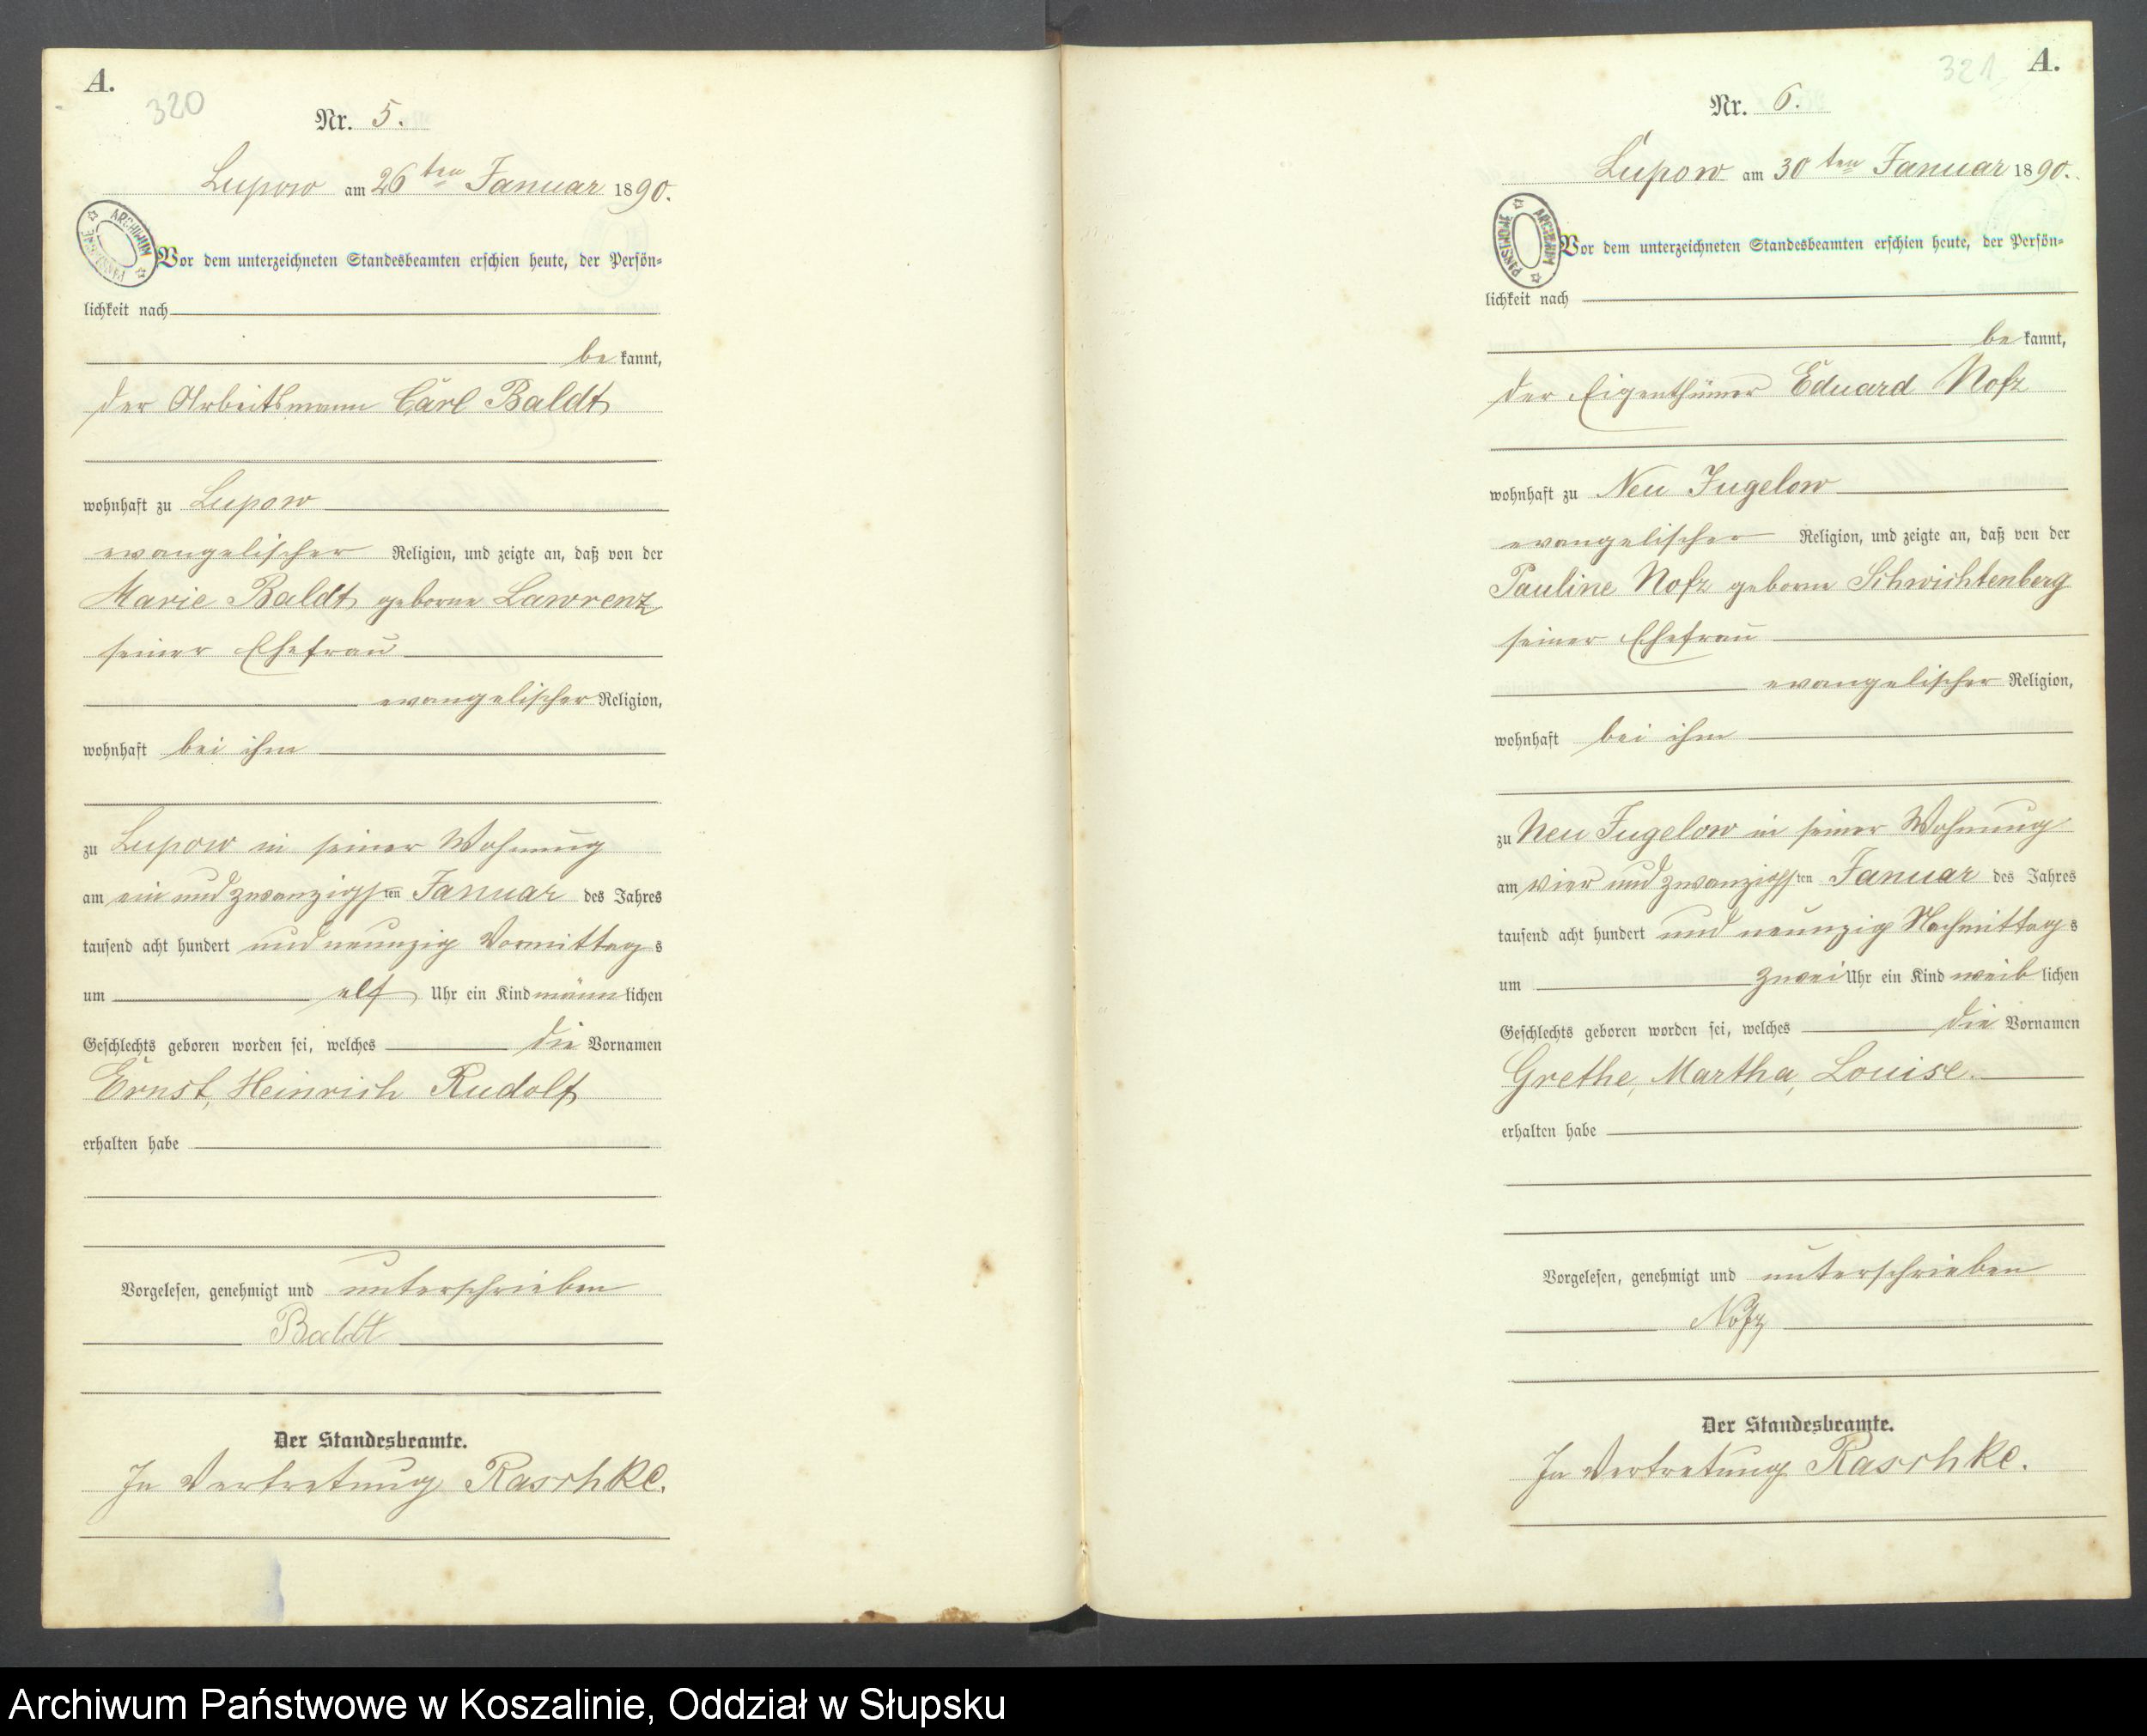 A.
320
Nr. 5.
Lupow am 26ten Januar 1890.
ARCHIWUM PAŃSTWOWE
Vor dem unterzeichneten Standesbeamten erschien heute, der Persön-
lichkeit nach
bekannt,
der Arbeitsmann Carl Baldt
wohnhaft zu Lupow
evangelischer Religion, und zeigte an, daß von der
Marie Baldt geborne Lawrenz
seiner Ehefrau
evangelischer Religion,
wohnhaft bei ihm
zu Lupow in seiner Wohnung
am ein und zwanzigsten Januar des Jahres
tausend acht hundert und neunzig Vormittags
um elf Uhr ein Kind männlichen
Geschlechts geboren worden sei, welches die Vornamen
Ernst, Heinrich Rudolf
erhalten habe
Vorgelesen, genehmigt und unterschrieben
Baldt
Der Standesbeamte.
In Vertretung Raschke.
321
A.
Nr. 6.
Lupow am 30ten Januar 1890.
ARCHIWUM PAŃSTWOWE
Vor dem unterzeichneten Standesbeamten erschien heute, der Persön-
lichkeit nach
bekannt,
der Eigenthümer Eduard Nofz
wohnhaft zu Neu Jugelow
evangelischer Religion, und zeigte an, daß von der
Pauline Nofz geborne Schwichtenberg
seiner Ehefrau
evangelischer Religion,
wohnhaft bei ihm
zu Neu Jugelow in seiner Wohnung
am vier und zwanzigsten Januar des Jahres
tausend acht hundert und neunzig Nachmittags
um zwei Uhr ein Kind weiblichen
Geschlechts geboren worden sei, welches die Vornamen
Grethe, Martha, Louise.
erhalten habe
Vorgelesen, genehmigt und unterschrieben
Nofz
Der Standesbeamte.
In Vertretung Raschke.
Archiwum Państwowe w Koszalinie, Oddział w Słupsku